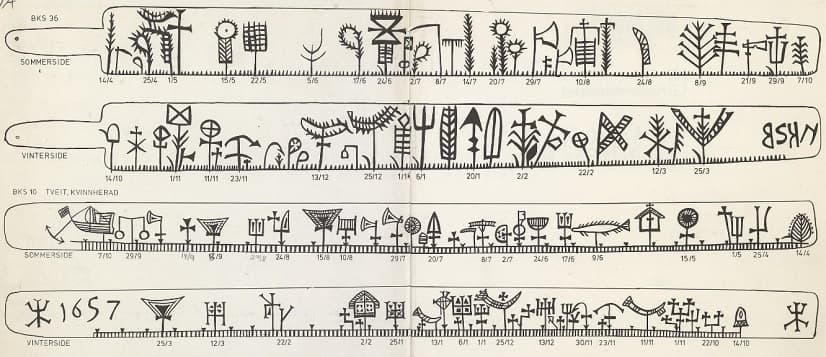 BKS 36
SOMMERSIDE
14/4 25/4 1/5 15/5 22/5 5/6 17/6 24/6 2/7 8/7 14/7 20/7 29/7 10/8 24/8 8/9 21/9 29/9 7/10
VINTERSIDE
14/10 1/11 11/11 23/11 13/12 25/12 1/1 6/1 20/1 2/2 22/2 12/3 25/3
BKS 10 TVEIT, KVINNHERAD
SOMMERSIDE
7/10 29/9 24/8 15/8 10/8 29/7 20/7 8/7 2/7 24/6 17/6 9/6 15/5 1/5 25/4 14/4
1657
VINTERSIDE
25/3 12/3 22/2 2/2 25/1 13/1 6/1 1/1 25/12 13/12 30/11 23/11 11/11 1/11 22/10 14/10